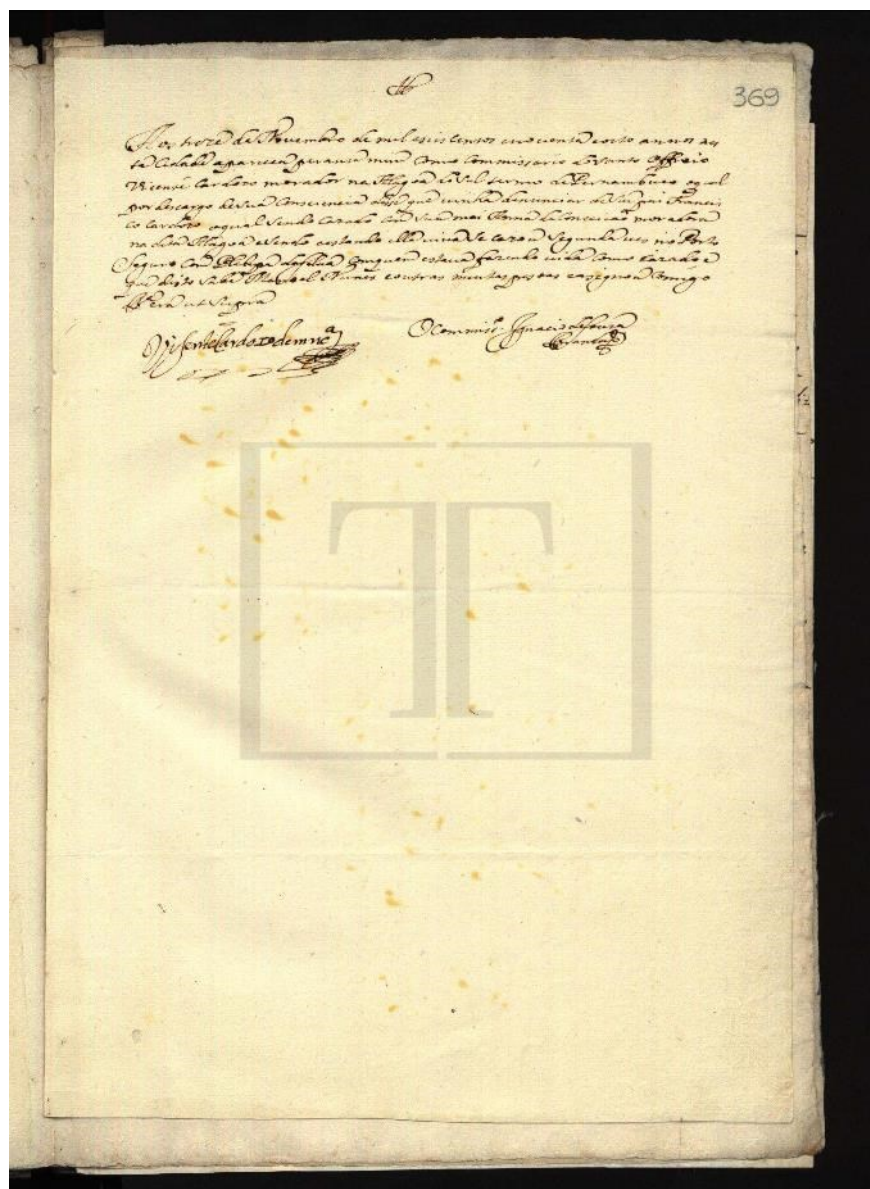 369
Aos treze de Novembro de mil e seis centos e noventa e oito annos nes
ta Cidade apareceu perante mim como Commissario do Santo Officio
Vicente Cardozo morador na Alagoa do Sul termo de Pernambuco o qual
por descargo de sua Consciencia disse que vinha denunciar de seu pai Francis
co Cardozo o qual sendo cazado com sua mai Anna da Conceicaõ moradora
na dita Alagoa e sendo estando ella viva se cazou segunda ves no Porto
Seguro com da Silva com quem estava fazendo vida como cazado e
que disto sabe Manoel Nunes e outras muitas pessoas e asignou comigo
era ut supra
Visente Cardozo
O Commissr.º Ignacio de Souza